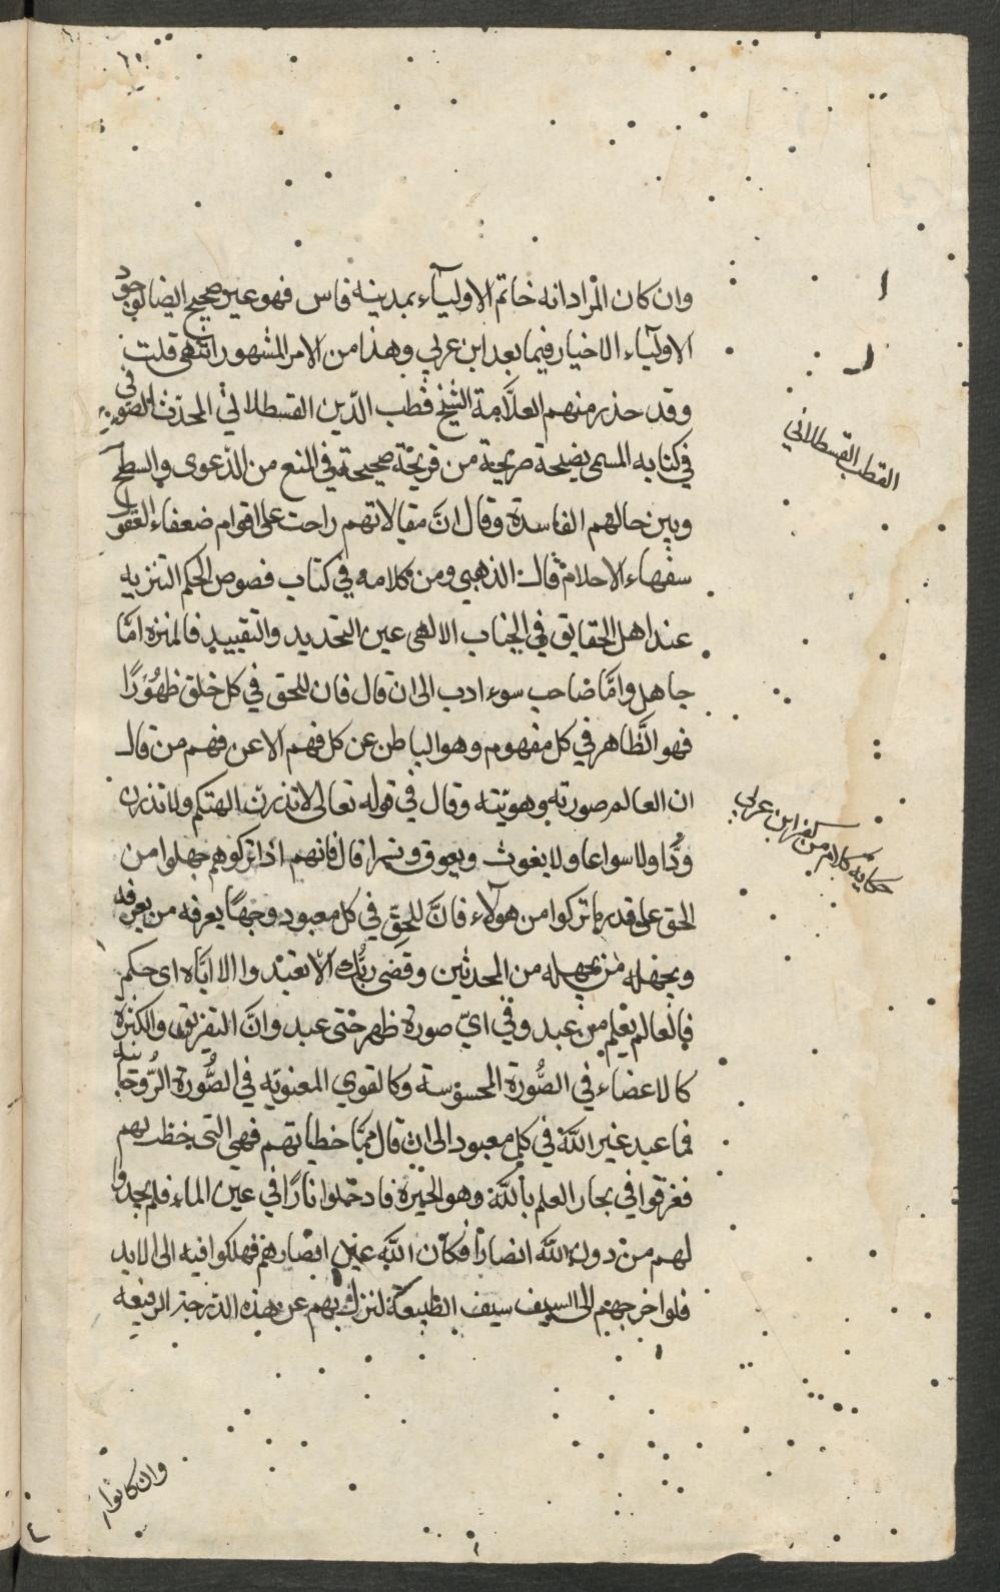 وان كان المراد انه خاتم الاولياء بمدينه فاس فهو غير صحيح ايضا لوجود
الاولياء الاخيار فيما بعد ابن عربي وهذا من الامر المشهور انتهى قلت
وقد حذر منهم العلَّامة الشيخ قطب الدين القسطلاني المحدث الصوفي
في كتابه المسمى نصيحة صريحة من قريحة صحيحة في المنع من الدعوى والشطح
وبين حالهم الفاسدة وقال انَّ مقالاتهم راحت على اقوام ضعفاء العقول
سفهاء الاحلام قال الذهبي ومن كلامه في كتاب فصوص الحكم التنزيه
عند اهل الحقايق في الجناب الالهى عين التحديد والتقييد فالمنزه امّا
جاهل وامّا صاحب سوء ادب الى ان قال فان للحق في كل خلق ظهُورًا
فهو الظَّاهر في كل مفهوم وهو الباطن عن كل فهم الا عن فهم من قال
ان العالم صورته وهويّته وقال في قوله تعالى لا تذرن الهتكم ولا تذرن
ودًّا ولا سواعا ولا يغوث ويعوق ونسرا قال فانهم اذا تركوهم جهلوا من
الحق على قدر ما تركوا من هولاء فانَّ للحقِّ في كل معبود وجهًا يعرفه من يعرفه
ويجهله من يجهله من المحدثين وقضى ربُّك الّا تعبدوا الا ايّاه اى حكم
فالعالم يعلم من عبد وفي ايّ صورة ظهر حتى عبد وانَّ التفريق والكثرة
كالاعضاء في الصُّورة المحسوسة وكالقوى المعنويه في الصُّورة الرُّوحانية
فما عبد غير اللَّه في كل معبود الى ان قال ممّا خطياتهم فهي التى خطت بهم
فغرقوا في بحار العلم باللَّه وهو الحيرة فادخلوا نارًا في عين الماء فلم يجدوا
لهم من دون اللَّه انصارًا فكان اللَّه عين انصارهم فهلكوا فيه الى الابد
فلو اخرجهم الى السيف سيف الطبيعة لنزل بهم عن هذه الدرجة الرفيعه
وان كانوا
القطب القسطلاني
حكاية كلام من كفر ابن عربي